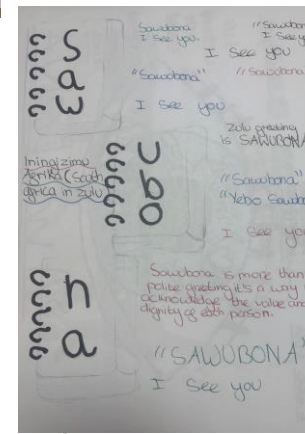 Sawubona
I see you.
"Sawubona
I See you
I See you
"Sawubona"
"Sawubona
I See you
Saw
Zulu greeting
is SAWUBONA
Iningizimu
Afrika (South
africa in zulu)
ubo
"Sawubona"
"Yebo Sawubo
I See you
Sawubona is more than
polite greeting it's a way
acknowledge the value and
dignity of each person.
na
"SAWUBONA"
I See you